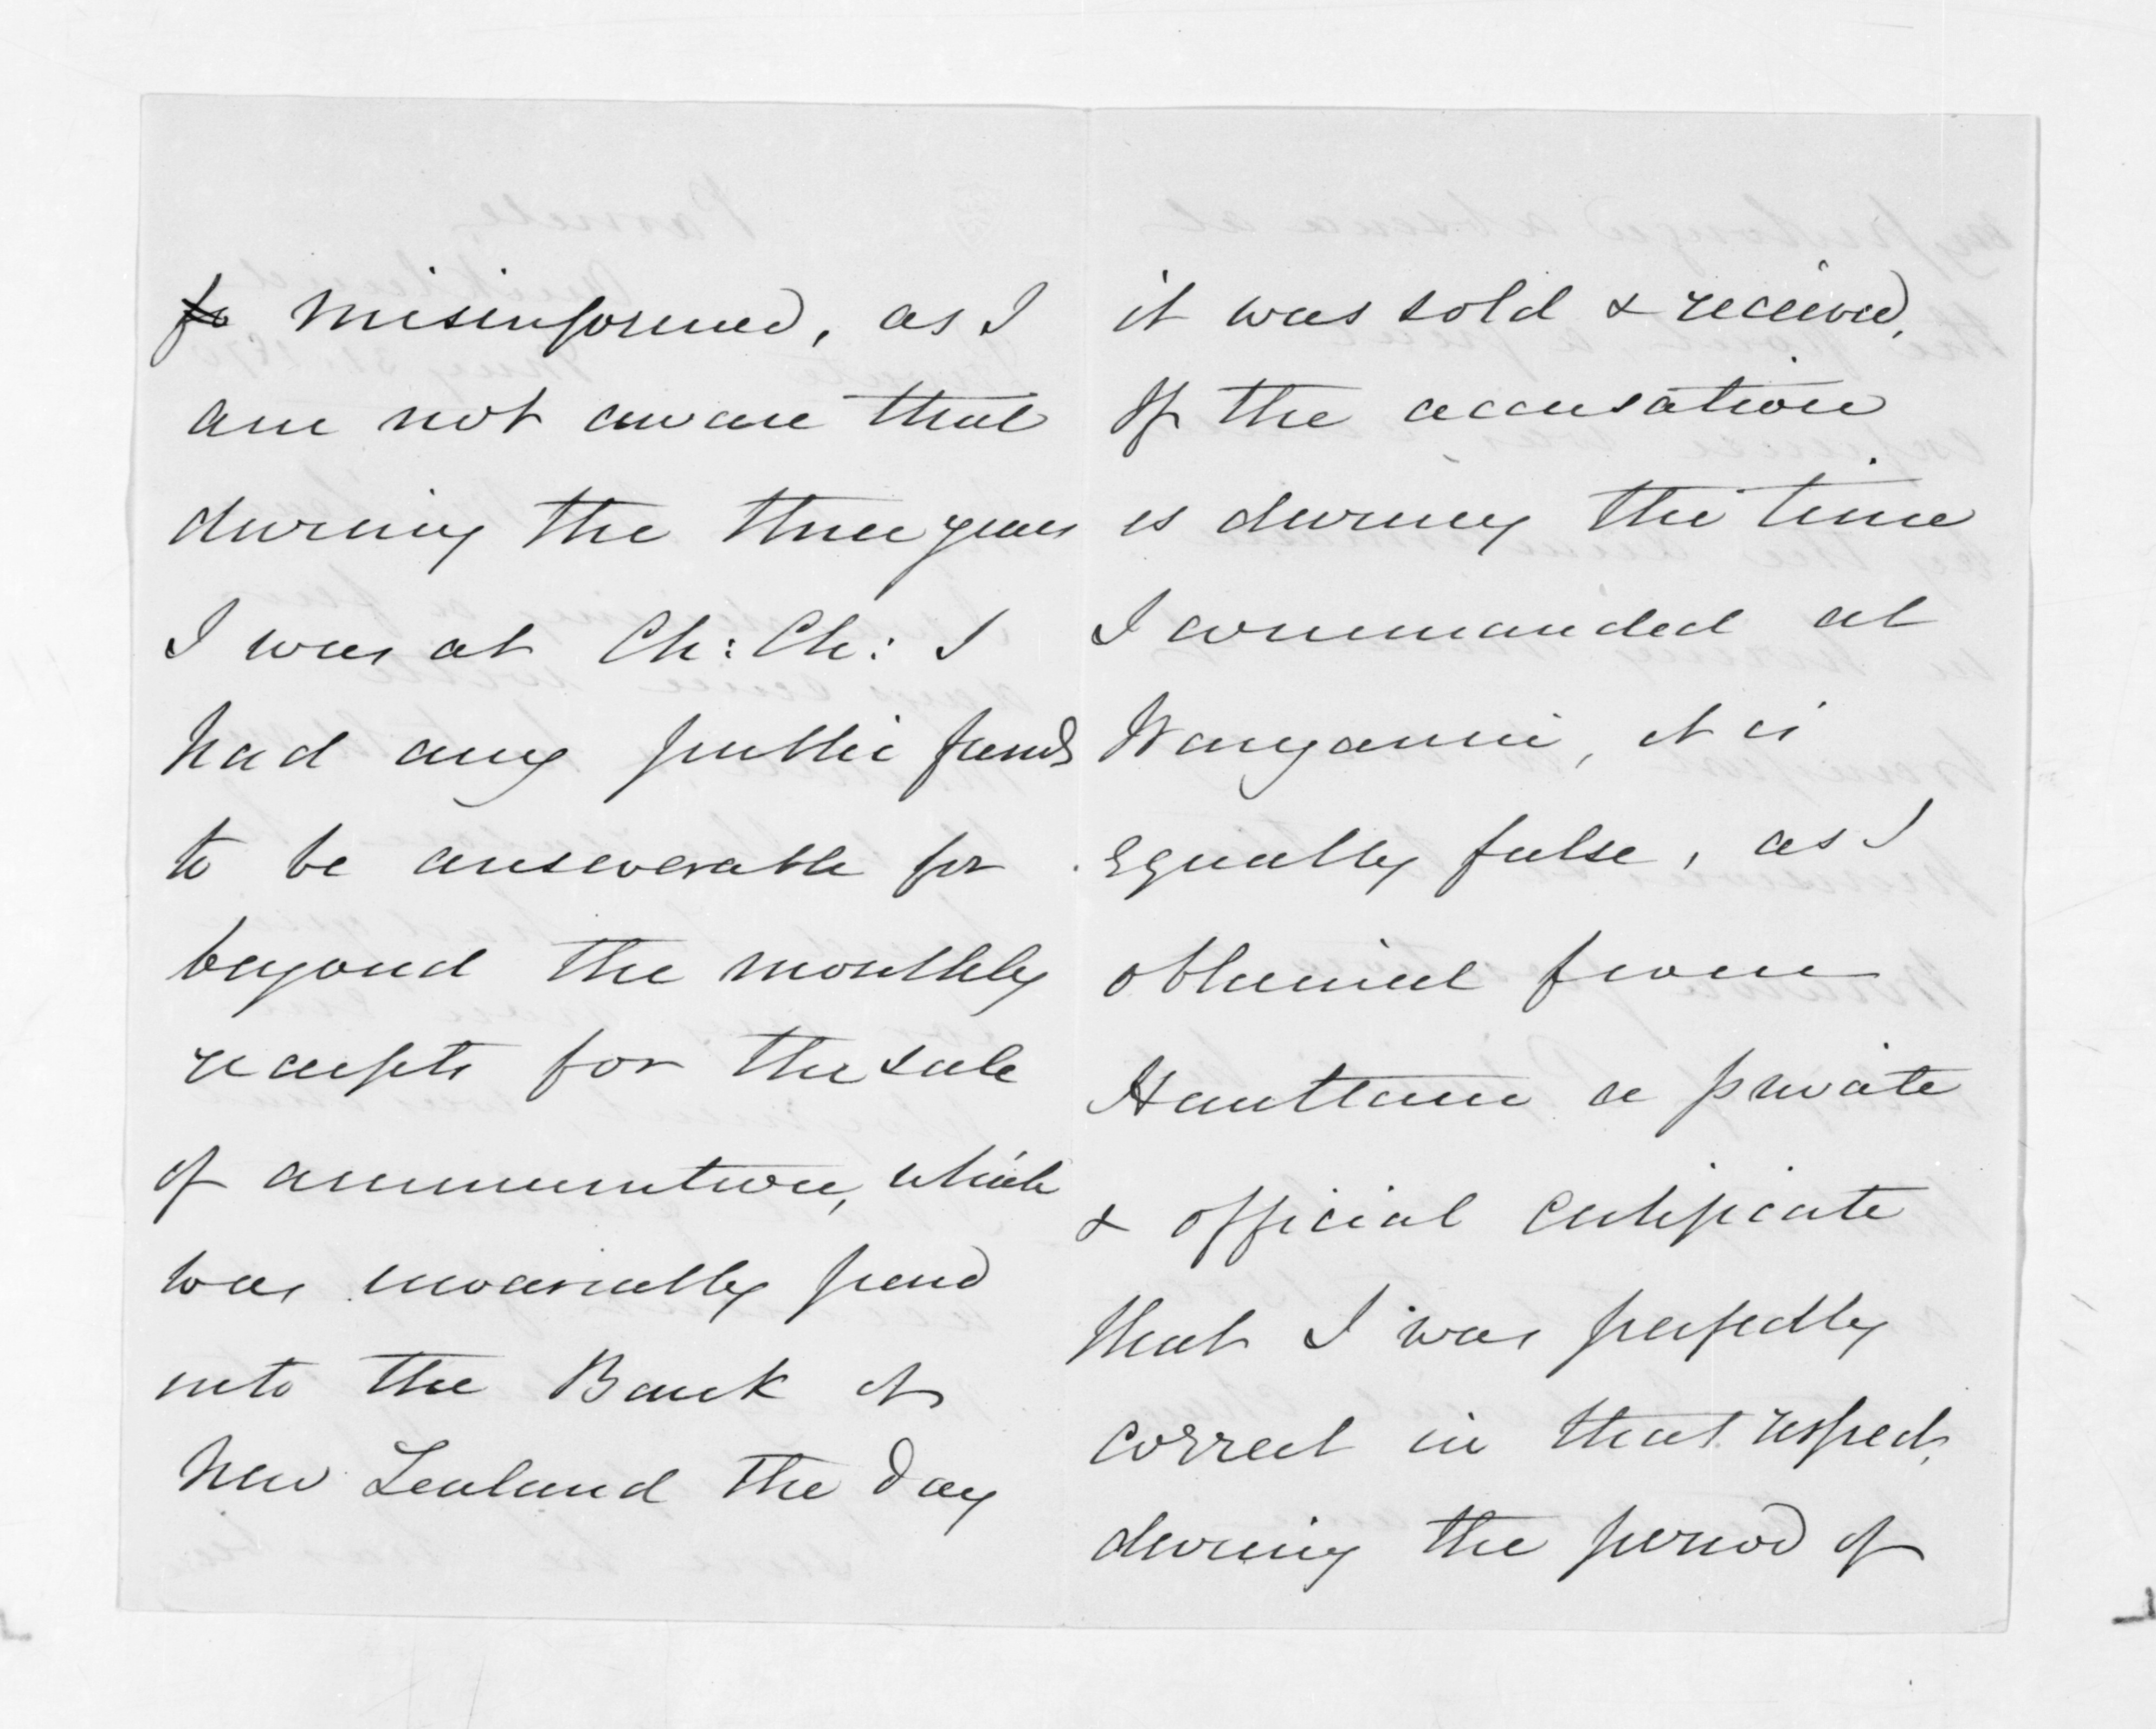 misinformed, as I
am not aware that
during the three years
I was at Ch: Ch: I
had any public funds
to be answerable for
beyond the monthly
receipts for the sale
of ammunition, which
was invariably paid
into the Bank of
New Zealand the day
it was sold & received,
If the accusation
is during the time
I commanded at
Wanganui, it is
equally false, as I
obtained from
Haultain a private
& official certificate
that I was perfectly
correct in that respect,
during the period of